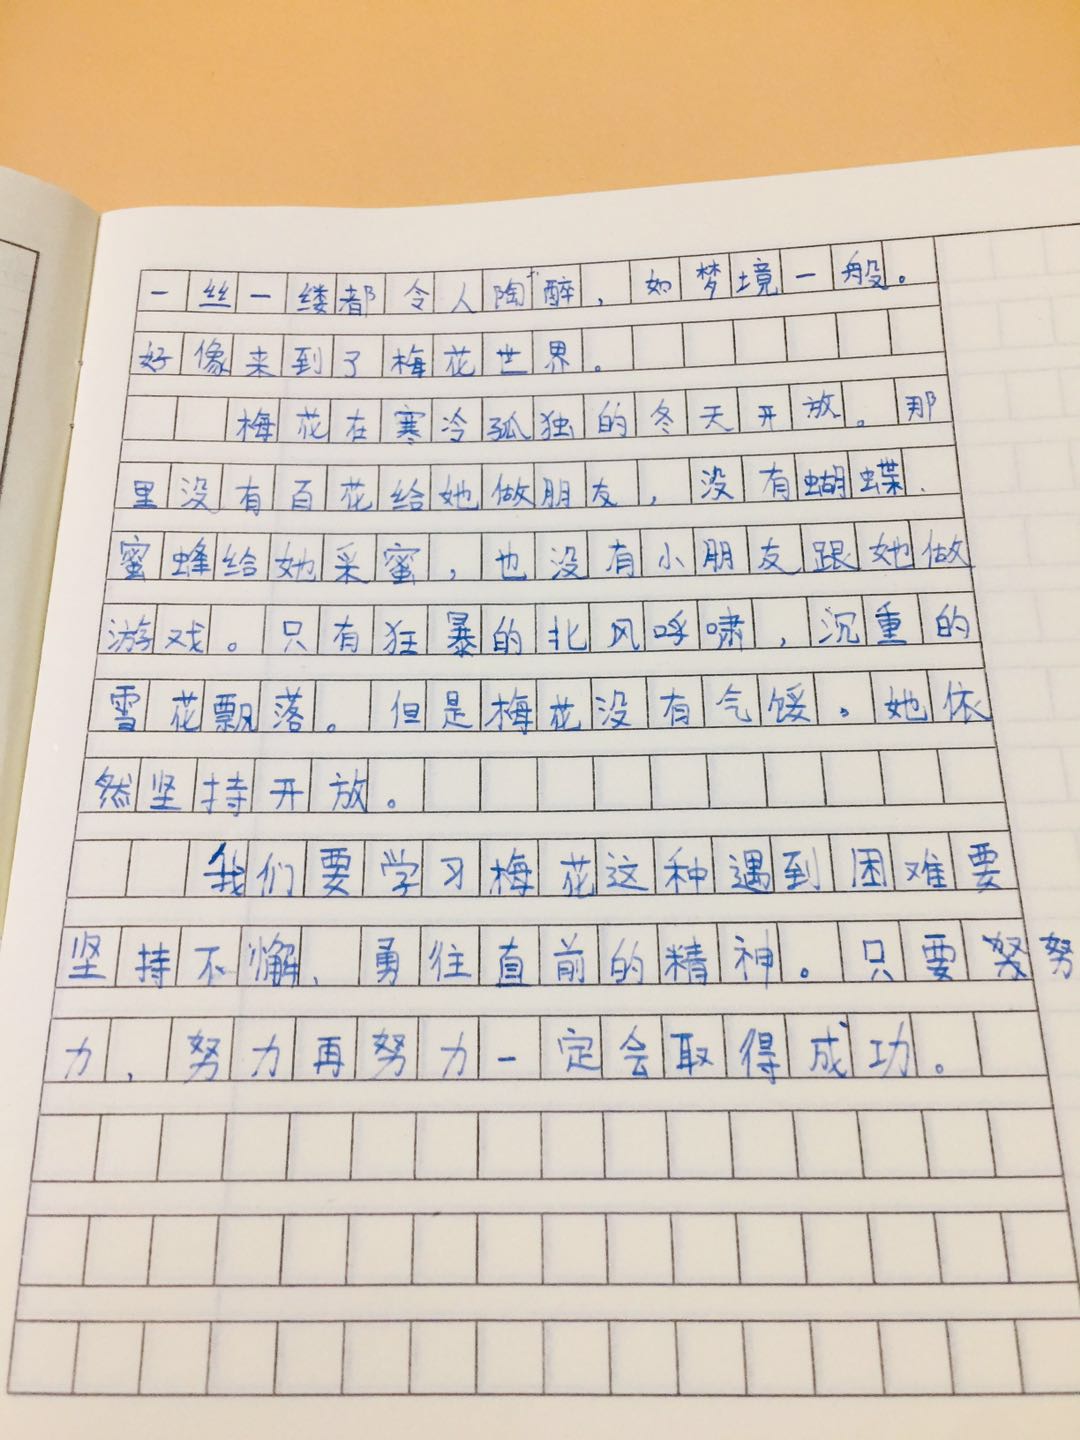 一丝一缕都令人陶醉，如梦境一般。
好像来到了梅花世界。
梅花在寒冷孤独的冬天开放。那
里没有百花给她做朋友，没有蝴蝶、
蜜蜂给她采蜜，也没有小朋友跟她做
游戏。只有狂暴的北风呼啸，沉重的
雪花飘落。但是梅花没有气馁，她依
然坚持开放。
我们要学习梅花这种遇到困难要
坚持不懈、勇往直前的精神。只要努努
力，努力再努力一定会取得成功。